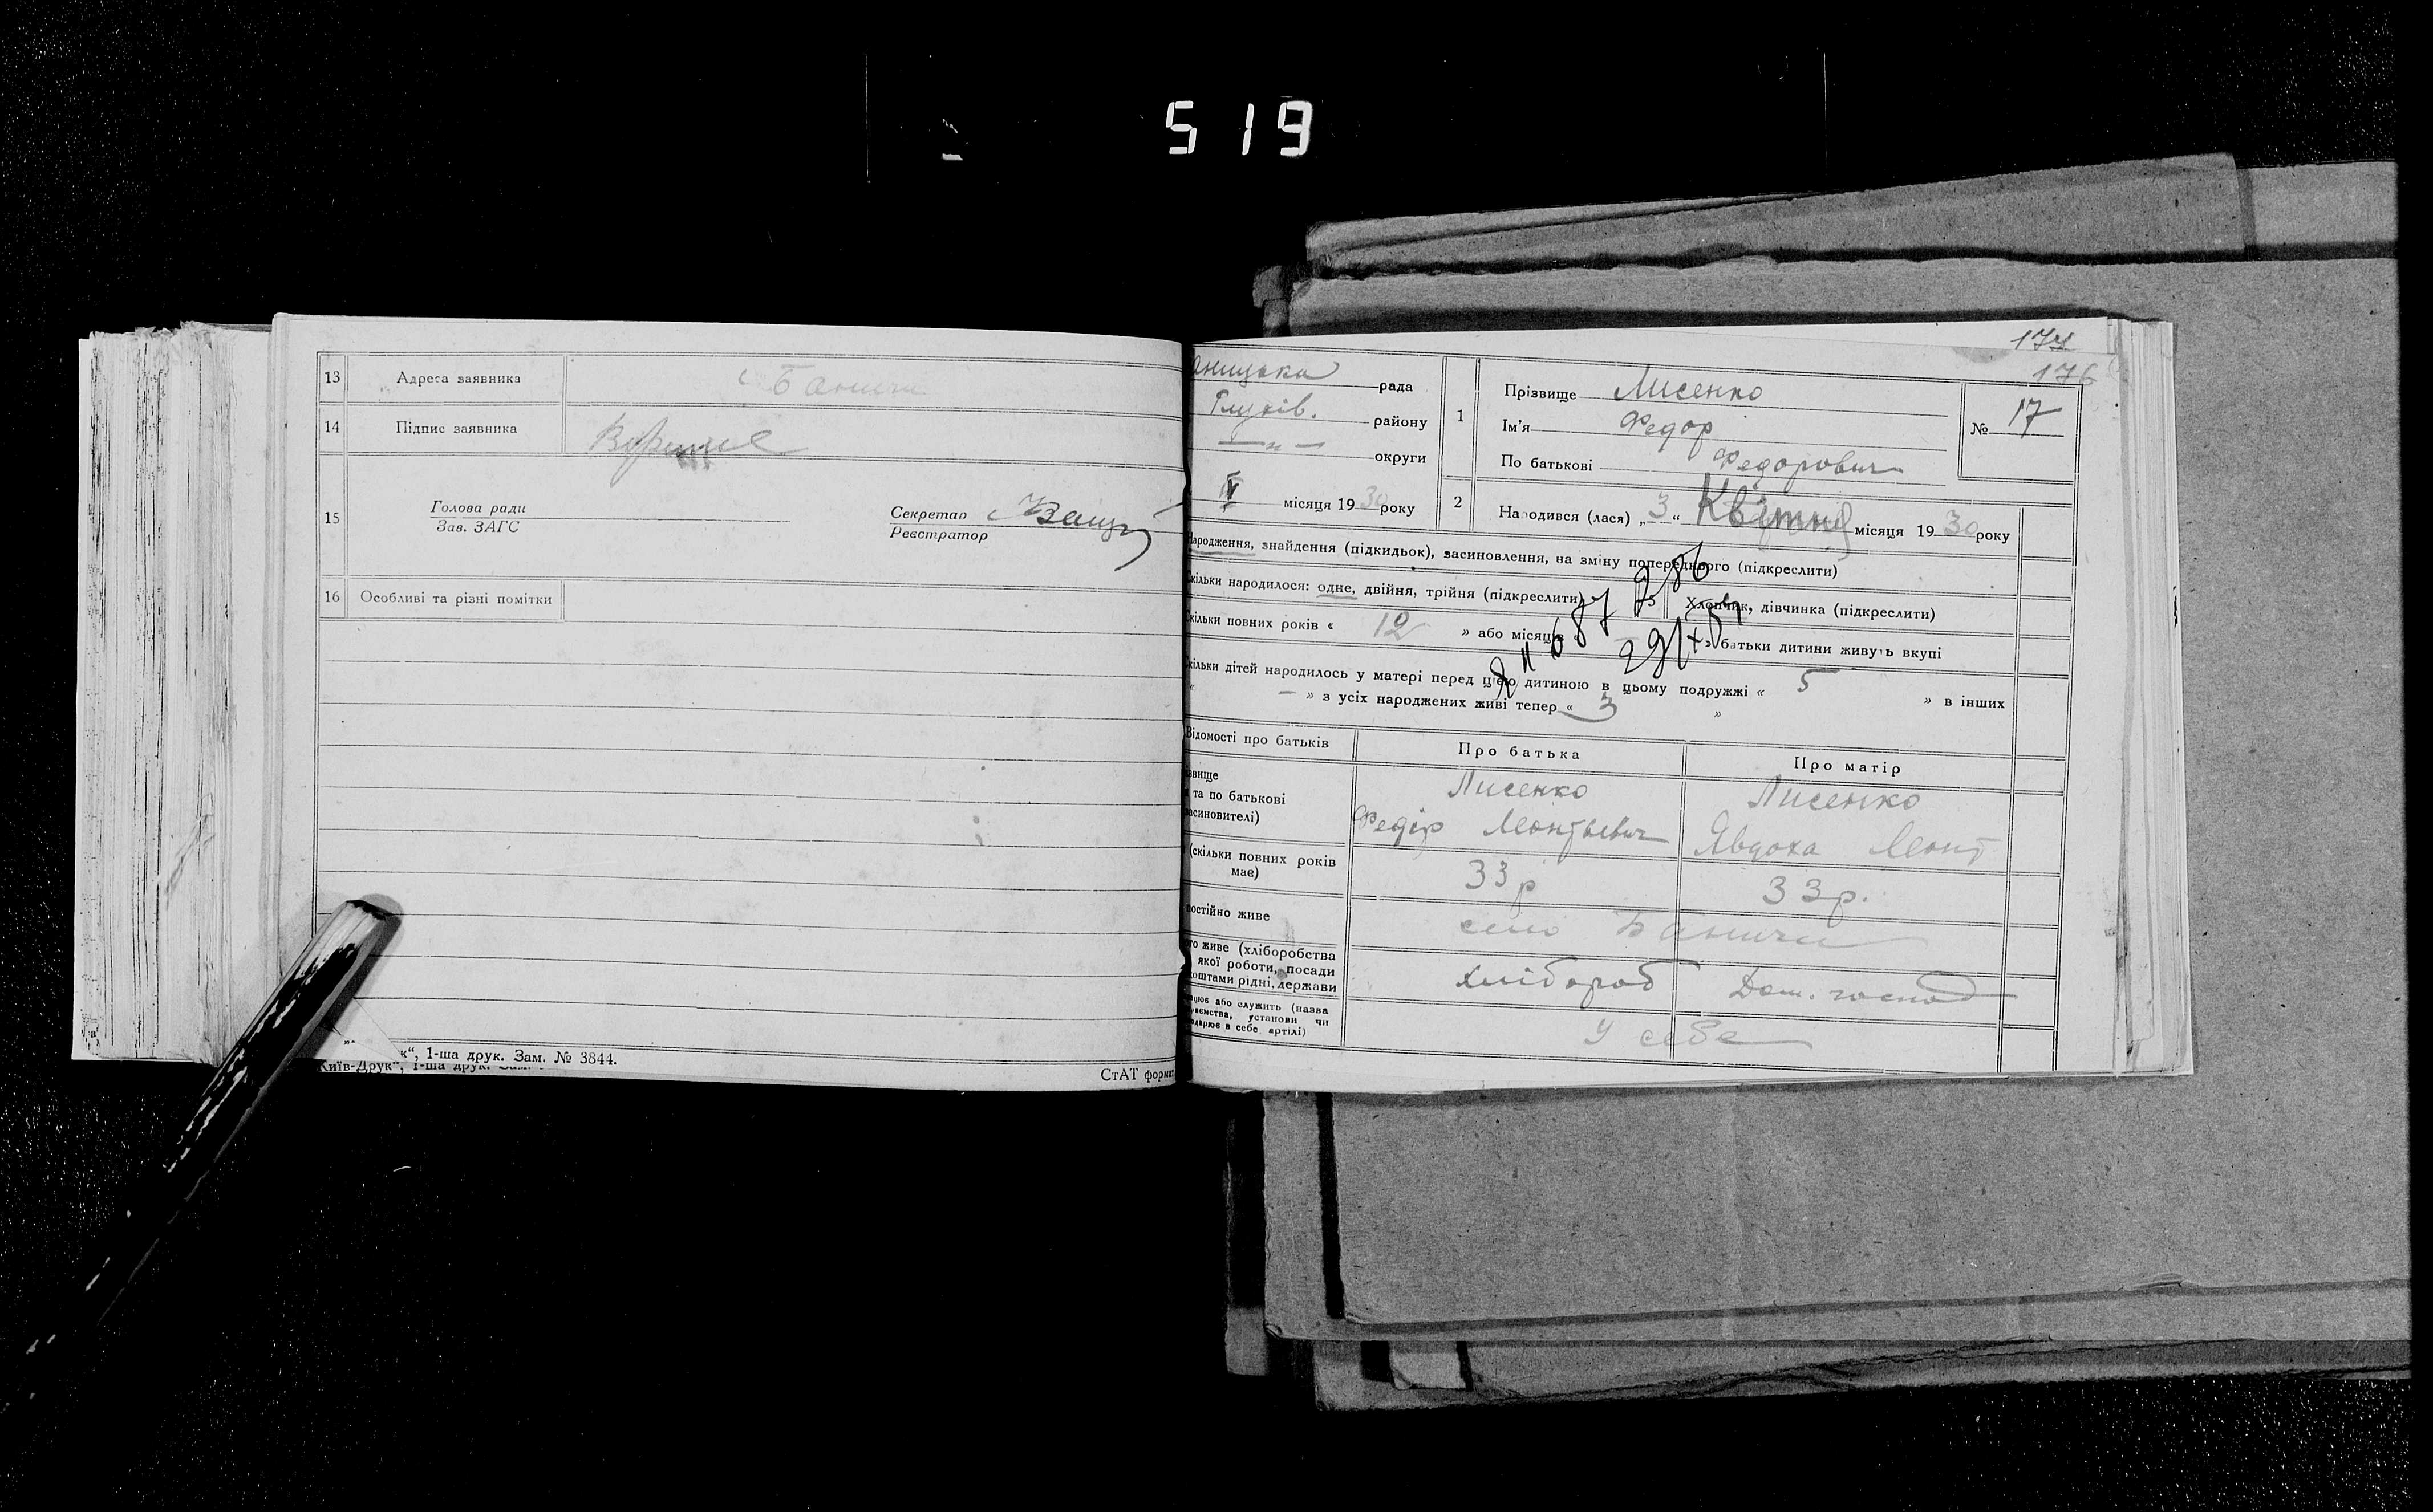 519
13 Адреса заявника с Баничи
14 Підпис заявника
15 Голова ради
Зав. ЗАГС
Секретар
Реєстратор
16 Особливі та різні помітки
к“, 1-ша друк. Зам. № 3844.
Київ-Друк“, 1-ша друк. Зам.
СтАТ формат
177
176
аницька рада
Глухів. району
—„— округи
IV місяця 1930 року
1 Прізвище Лисенко
Ім'я Федор
По батькові Федорович
№ 17
2 Народився (лася) „3“ Квітня місяця 1930 року
Народження, знайдення (підкидьок), засиновлення, на зміну попереднього (підкреслити)
Скільки народилося: одне, двійня, трійня (підкреслити) 5 Хлопчик, дівчинка (підкреслити)
Скільки повних років « 12 » або місяців » батьки дитини живуть вкупі
Скільки дітей народилось у матері перед цією дитиною в цьому подружжі « 5 » в інших
« — » з усіх народжених живі тепер « 3 »
687 286
Відомості про батьків Про батька Про матір
ізвище
та по батькові
засиновителі)
Лисенко
Федір Леонтьевич
Лисенко
Явдоха Леонт
(скільки повних років
має)
33 р
33 р.
постійно живе село Баничи
го живе (хліборобства
якої роботи, посади
коштами рідні, держави
хлібороб Дом. господ
цює або служить (назва
установи чи
одарює в себе, артілі)
У себе